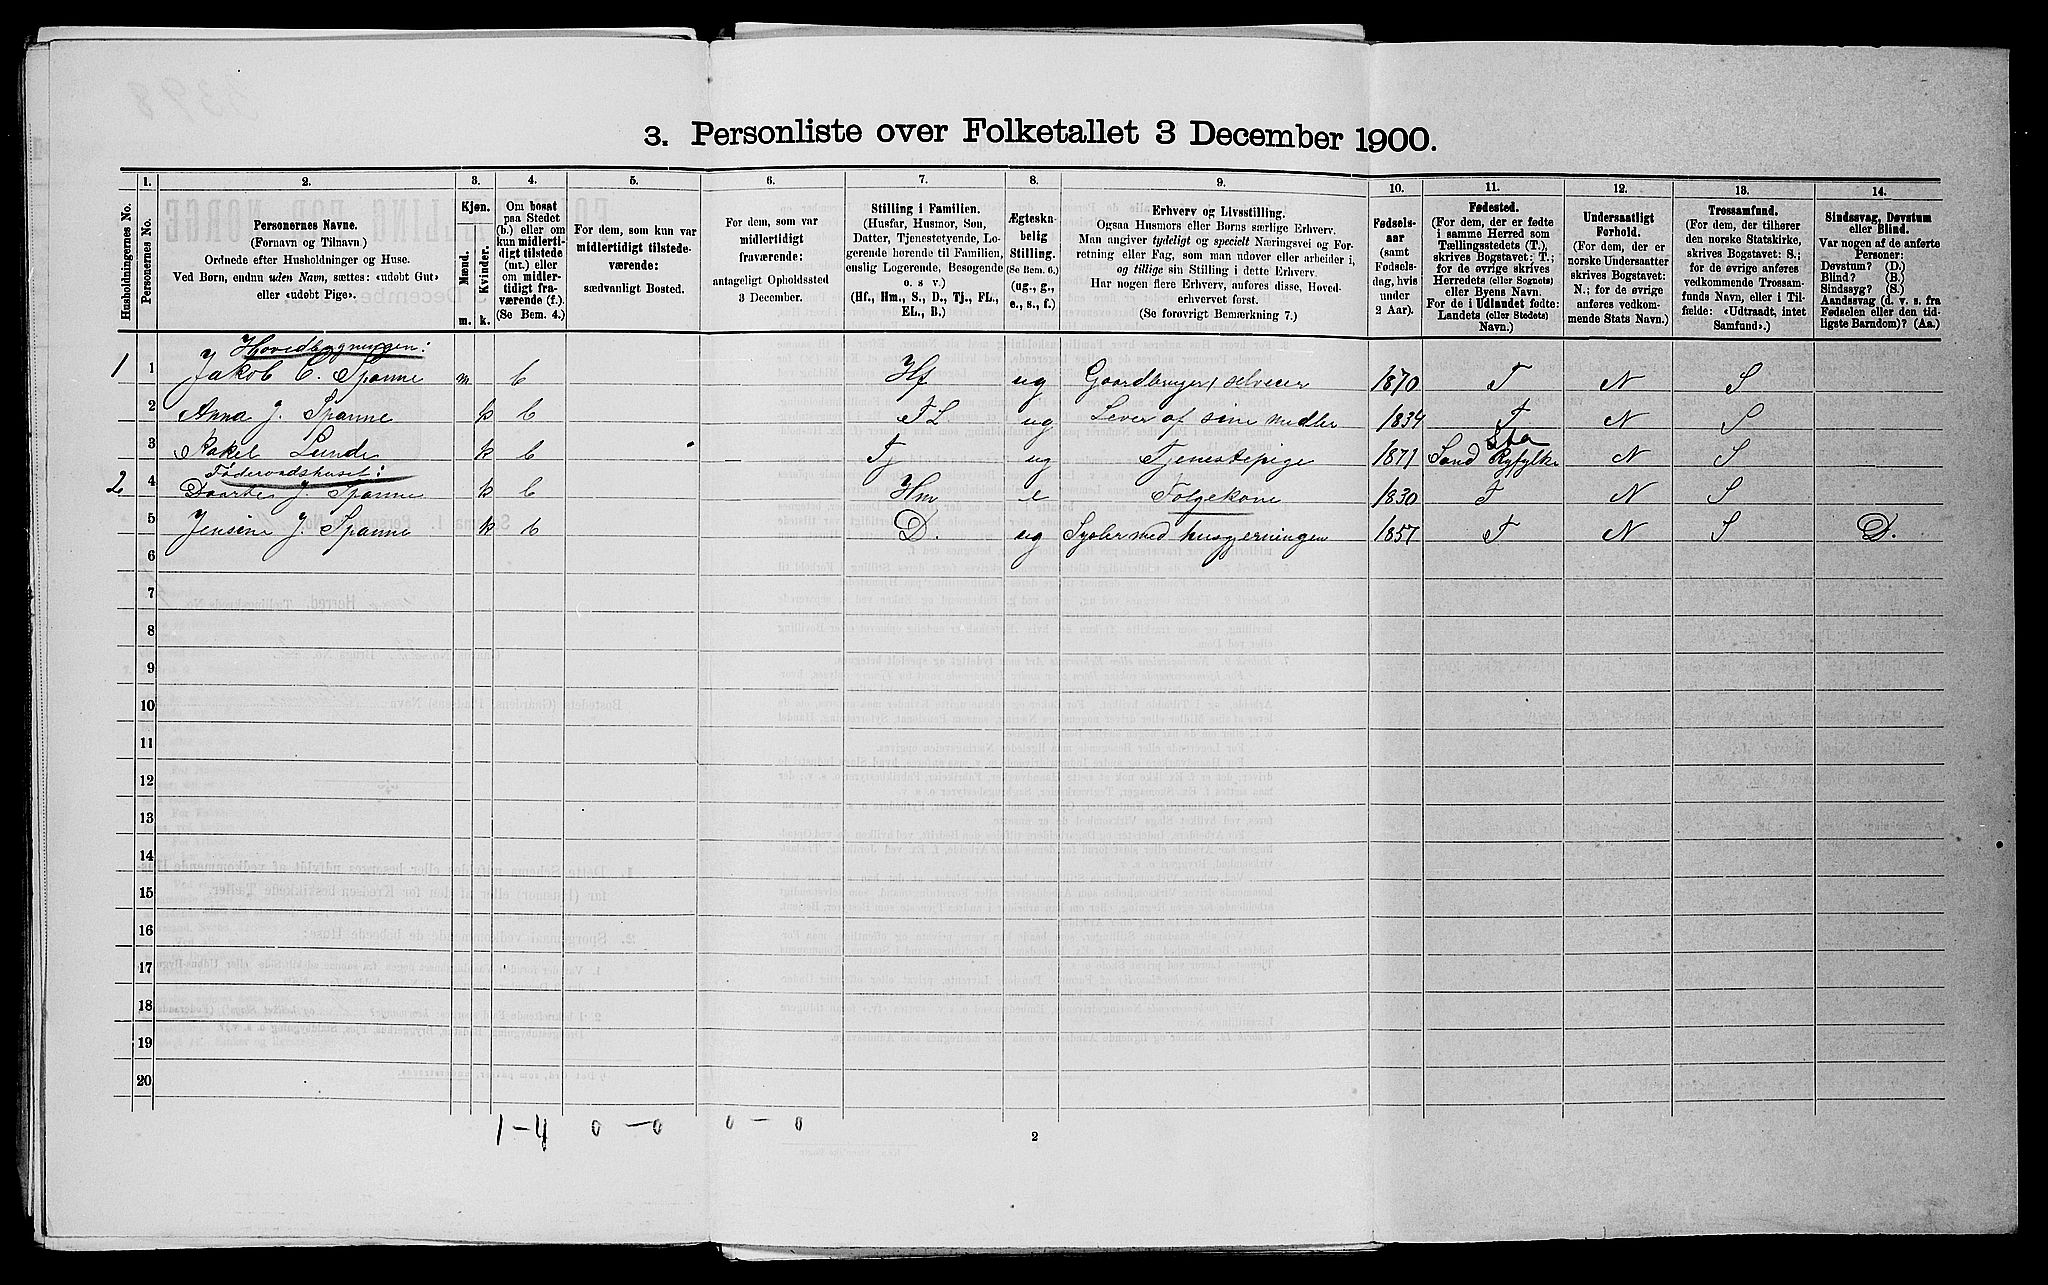 3. Personliste over Folketallet 3 December 1900.
1. 2. 3. 4. 5. 6. 7. 8. 9. 10. 11. 12. 13. 14.
Husholdningernes No.
Personernes No.
Personernes Navne.
(Fornavn og Tilnavn.)
Ordnede efter Husholdninger og Huse.
Ved Børn, endnu uden Navn, sættes: «udøbt Gut»
eller «udøbt Pige».
Kjøn.
Mænd.
Kvinder.
m. k.
Om bosat
paa Stedet
(b.) eller om
kun midlerti-
digt tilstede
(mt.) eller
om midler-
tidigt fra-
værende (f.).
(Se Bem. 4.)
For dem, som kun var
midlertidigt tilstede-
værende:
sædvanligt Bosted.
For dem, som var
midlertidigt
fraværende:
antageligt Opholdssted
3 December.
Stilling i Familien.
(Husfar, Husmor, Søn,
Datter, Tjenestetyende, Lo-
gerende hørende til Familien,
enslig Logerende, Besøgende
o. s v.)
(Hf., Hm., S., D., Tj., FL.,
EL., B.)
Ægteska-
belig
Stilling.
(Se Bem. 6.)
(ug., g.,
e., s., f.)
Erhverv og Livsstilling.
Ogsaa Husmors eller Børns særlige Erhverv.
Man angiver tydeligt og specielt Næringsvei og For-
retning eller Fag, som man udøver eller arbeider i,
og tillige sin Stilling i dette Erhverv.
Har nogen flere Erhverv, anføres disse, Hoved-
erhvervet først.
(Se forøvrigt Bemærkning 7.)
Fødsels-
aar
(samt
Fødsels-
dag, hvis
under
2 Aar).
Fødested.
(For dem, der er fødte
i samme Herred som
Tællingsstedets (T.),
skrives Bogstavet: T.;
for de øvrige skrives
Herredets (eller Sognets)
eller Byens Navn.
For de i Udlandet fødte:
Landets (eller Stedets)
Navn.)
Undersaatligt
Forhold.
(For norske Undersaatter
skrives Bogstavet:
N.; for de øvrige
anføres vedkom-
mende Stats Navn.)
Trossamfund.
(For dem, der tilhører
den norske Statskirke,
skrives Bogstavet: S.;
for de øvrige anføres
vedkommende Trossam-
funds Navn, eller i Til-
fælde: «Udtraadt, intet
Samfund».)
Sindssvag, Døvstum
eller Blind.
Var nogen af de anførte
Personer:
Døvstum? (D.)
Blind? (B.)
Sindssyg? (S.)
Aandssvag (d. v. s. fra
Fødselen eller den tid-
ligste Barndom)? (Aa.)
Hovedbygningen:
1 1 Jakob C. Spanne m b Hf ug Gaardbruger, selveier 1870 T N S
2 Anna J. Spanne k b FL ug Lever af sine midler 1834 T N S
Sta
3 Rakel Lunde k b — Tj ug Tjenestepige 1871 Sand Ryfylke N S
Føderaadshuset:
2 4 Daarte J. Spanne k b Hm e Folgekone 1830 T N S
5 Jensine J. Spanne k b D. ug Syslermed husgjerningen 1857 T N S D.
6
7
8
9
10
11
12
13
14
15
16
17
18
19
20
1-4 0-0 0-0
2